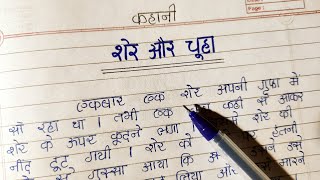 Date
Page
कहानी
शेर और चूहा
एकबार एक शेर अपनी गुफा में
सो रहा था । तभी एक कहीं से आकर
शेर के ऊपर कूदने लगा । शेर की
नींद टूट गयी । शेर को इतनी
गुस्सा आया कि उस
लिया और मारने